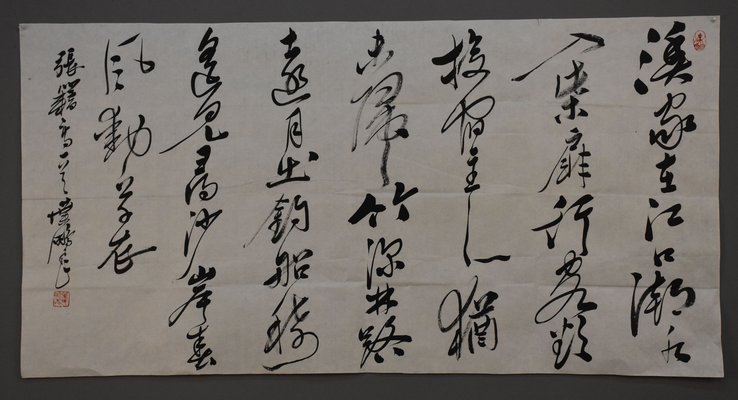 漁家在江口潮水
入柴扉行客欲
投宿主人猶
未歸竹深村路
遠月出釣船稀
遥見尋沙岸春
風動草衣
張籍